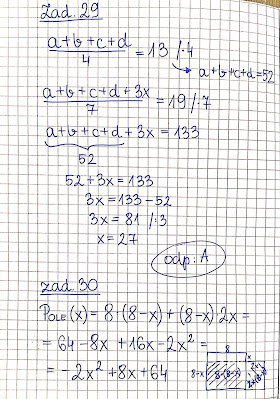 Zad. 29
(a+b+c+d)/4 = 13 /·4
a+b+c+d=52
(a+b+c+d+3x)/7 = 19 /·7
a+b+c+d+3x = 133
52
52+3x = 133
3x = 133-52
3x = 81 /:3
x = 27
odp: A
zad. 30
POLE (x) = 8·(8-x)+(8-x)·2x =
= 64-8x+16x-2x² =
= -2x²+8x+64
8
8-x
8·(8-x)
x